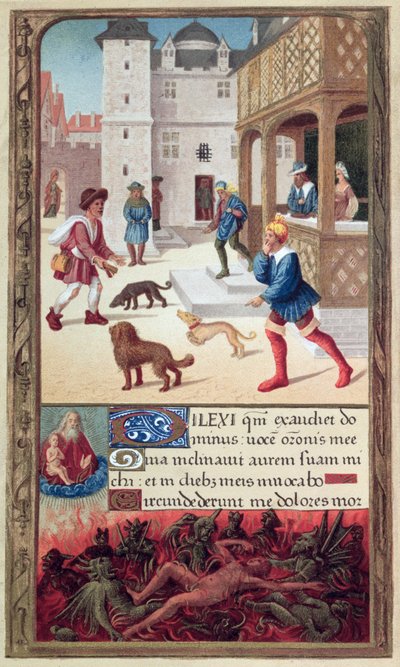 DILEXI qm̄ exaudiet do
minus: uocē orōnis mee
Quia inclinauit aurem suam mi
chi: et in diebz meis inuocabo
Circundederunt me dolores mor